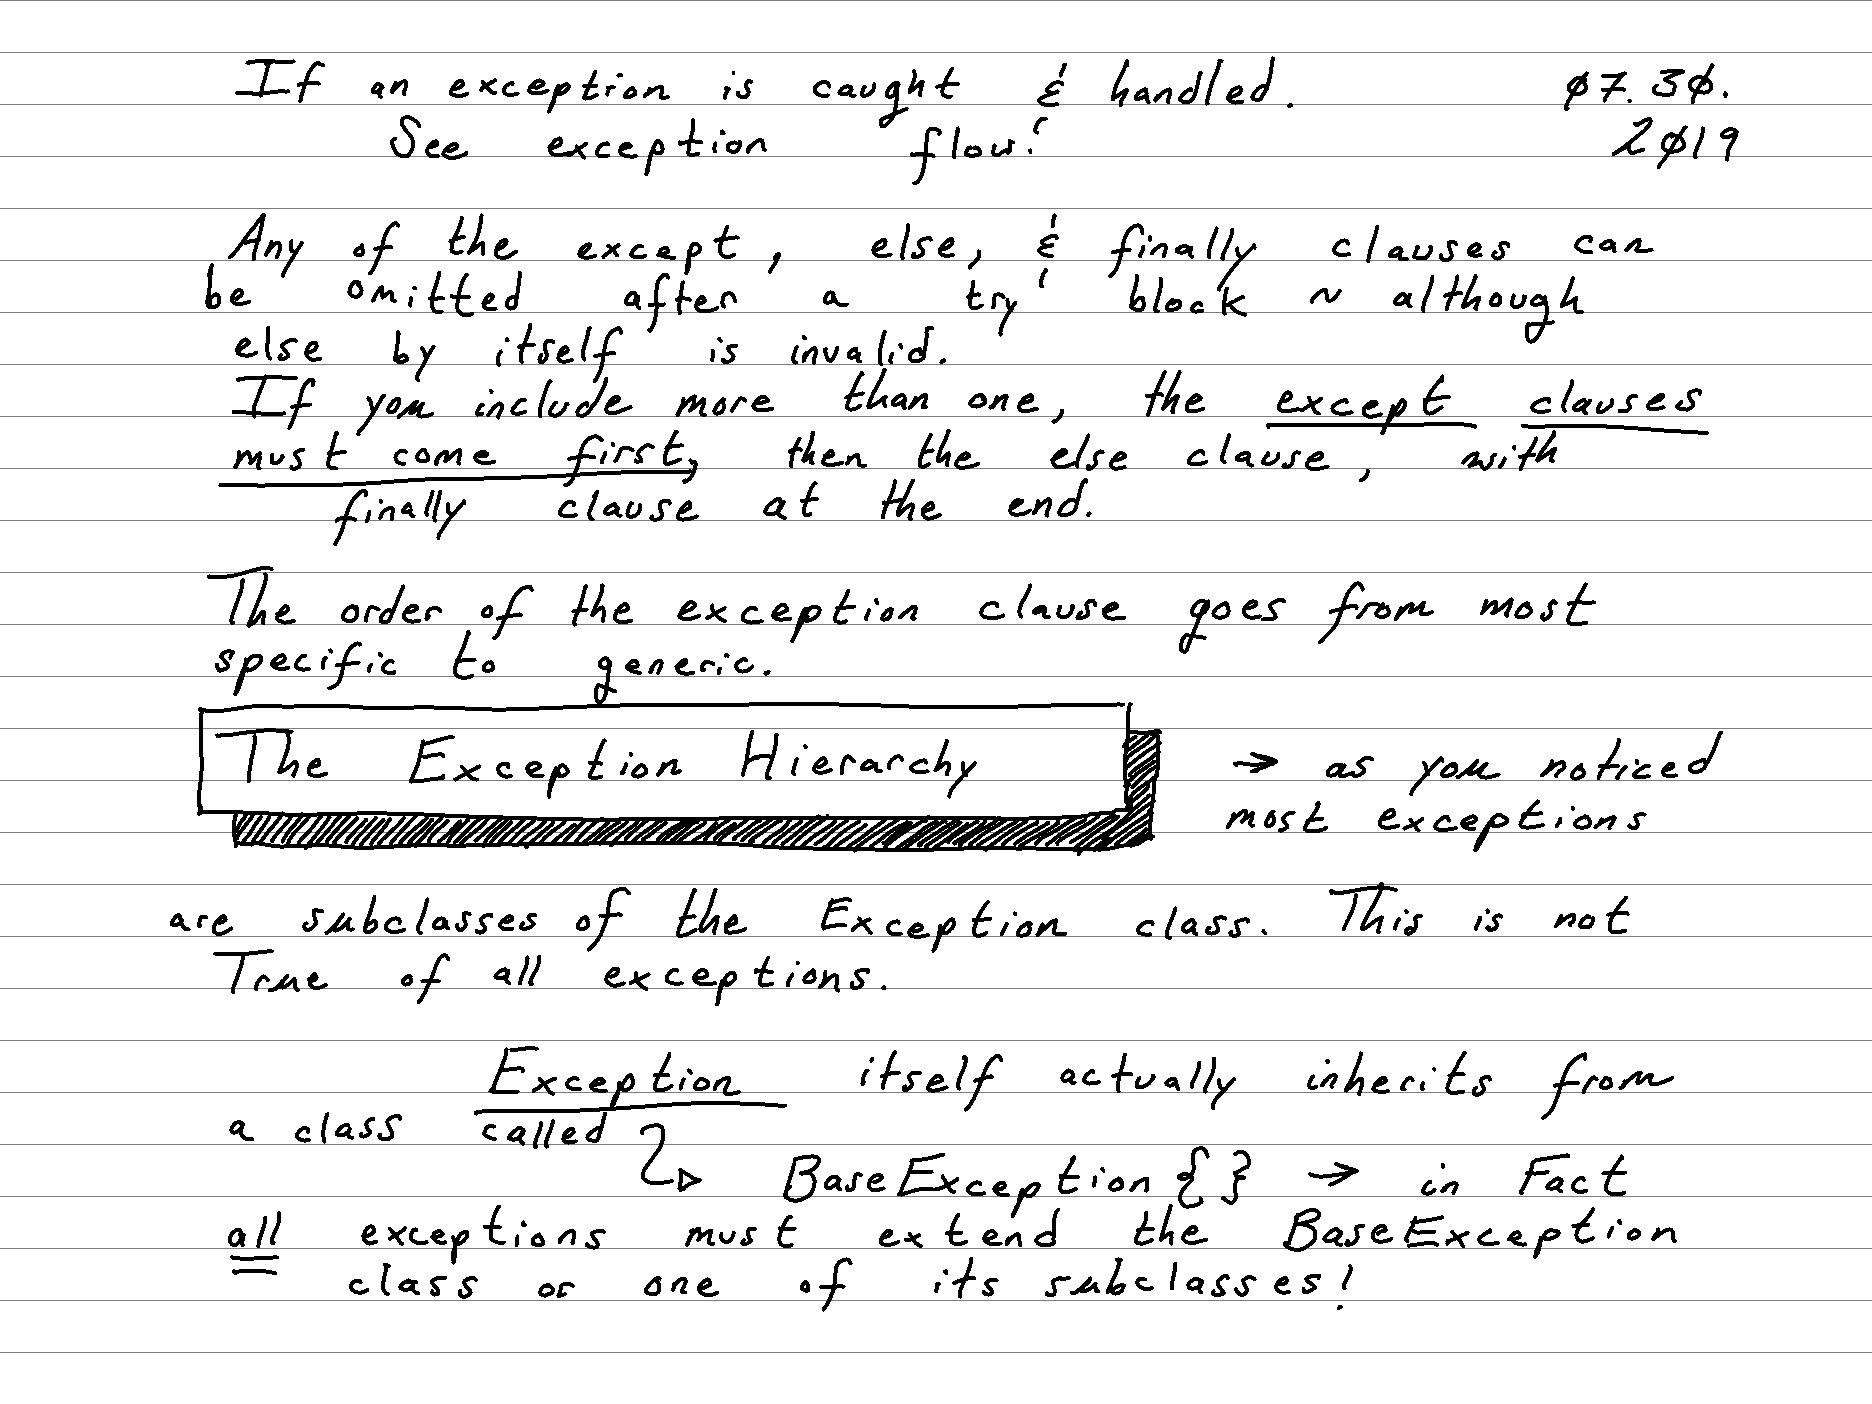 If an exception is caught & handled. 07.30.
See exception flow! 2019
Any of the except, else, & finally clauses can
be omitted after a try block ~ although
else by itself is invalid.
If you include more than one, the except clauses
must come first, then the else clause, with
finally clause at the end.
The order of the exception clause goes from most
specific to generic.
The Exception Hierarchy → as you noticed
most exceptions
are subclasses of the Exception class. This is not
True of all exceptions.
Exception itself actually inherits from
a class called
BaseException { } → in Fact
all exceptions must extend the BaseException
class or one of its subclasses!